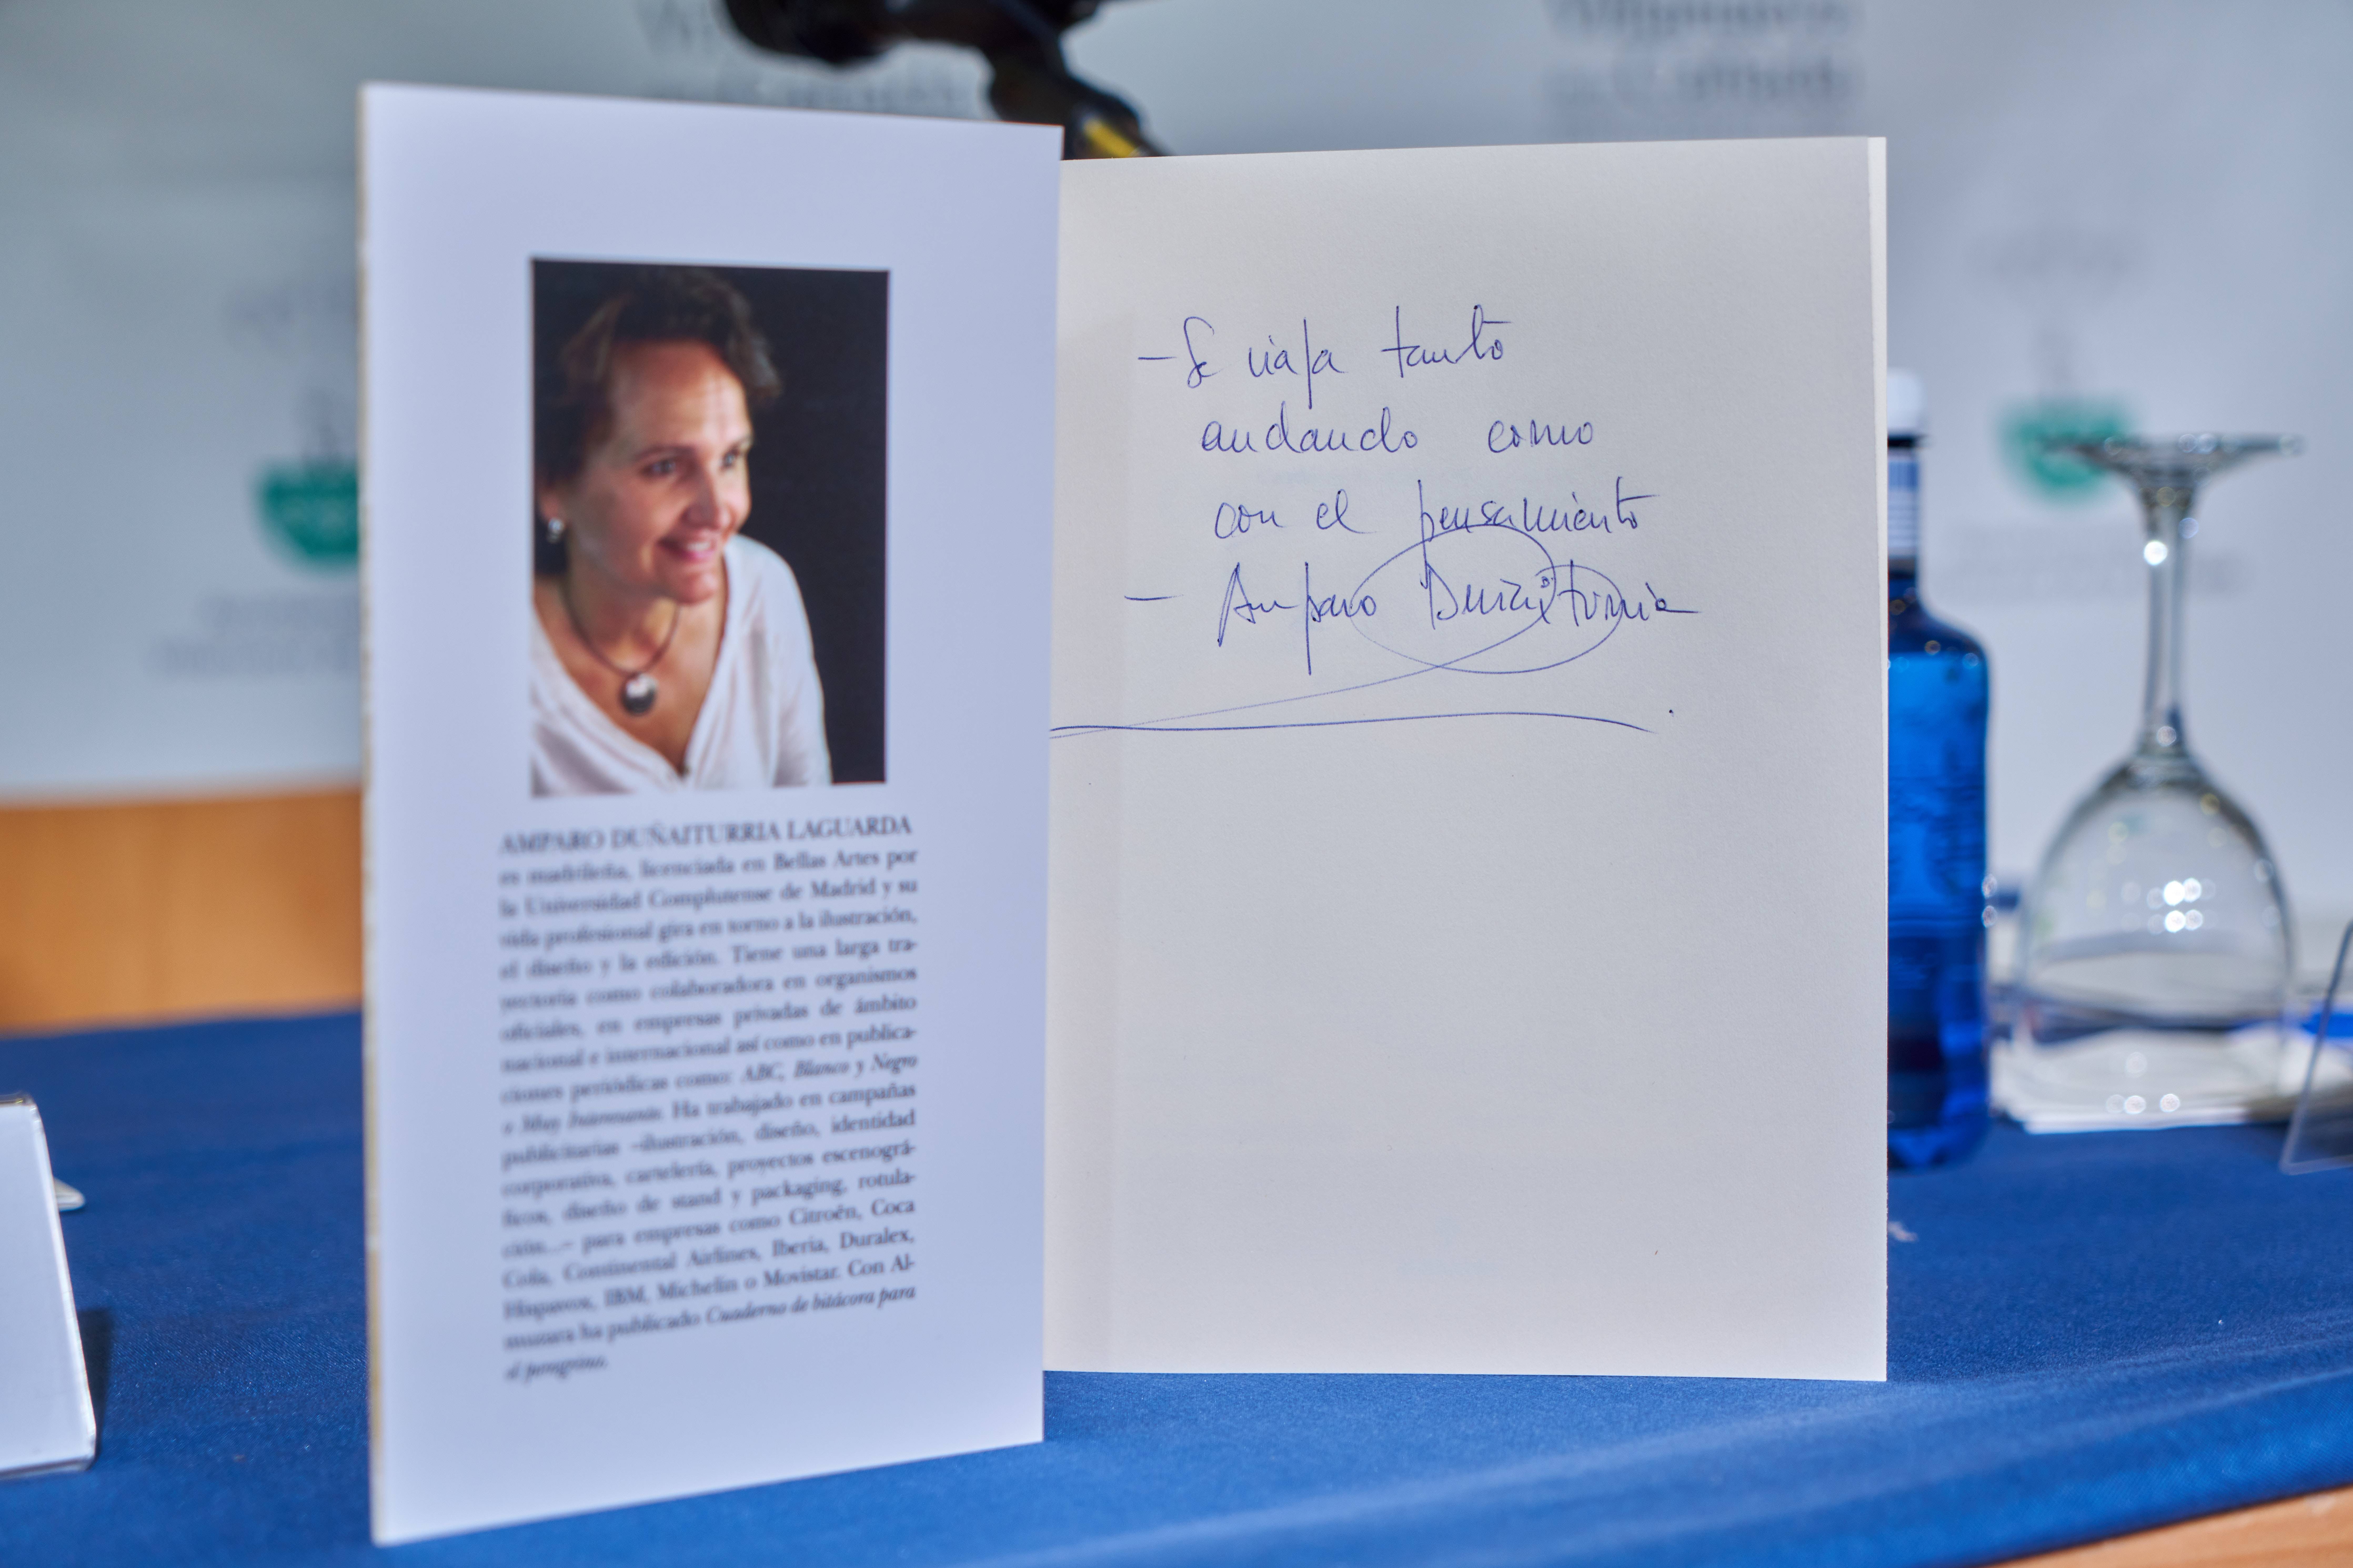 AMPARO DUÑAITURRIA LAGUARDA
es madrileña, licenciada en Bellas Artes por
la Universidad Complutense de Madrid y su
vida profesional gira en torno a la ilustración,
el diseño y la edición. Tiene una larga tra-
yectoria como colaboradora en organismos
oficiales, en empresas privadas de ámbito
nacional e internacional así como en publica-
ciones periódicas como: ABC, Blanco y Negro
o Muy Interesante. Ha trabajado en campañas
publicitarias –ilustración, diseño, identidad
corporativa, cartelería, proyectos escenográ-
ficos, diseño de stand y packaging, rotula-
ción...– para empresas como Citroën, Coca
Cola, Continental Airlines, Iberia, Duralex,
Hispavox, IBM, Michelín o Movistar. Con Al-
muzara ha publicado Cuaderno de bitácora para
el peregrino.
– Se viaja tanto
andando como
con el pensamiento
– Amparo Duñaiturria